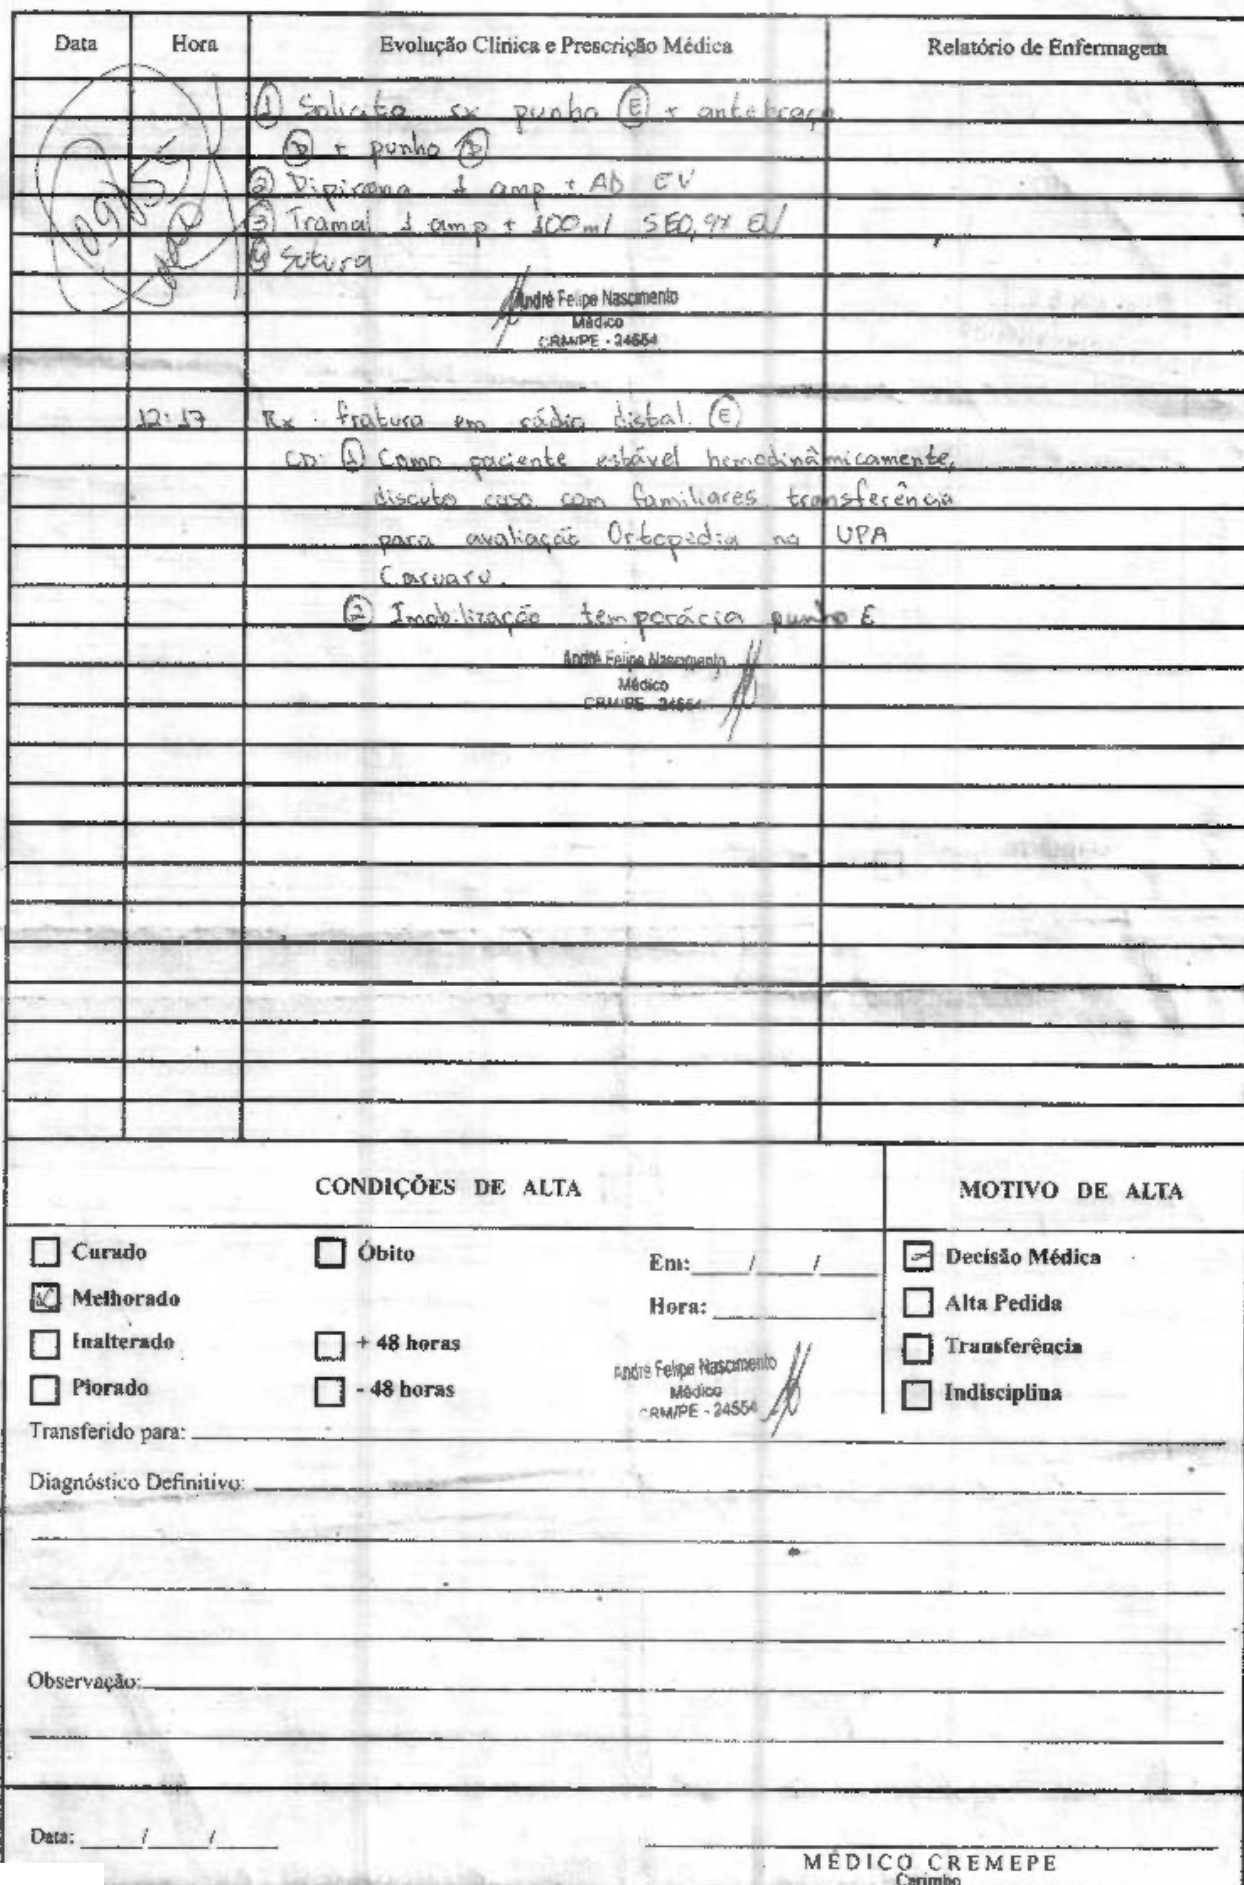 Data Hora Evolução Clínica e Prescrição Médica Relatório de Enfermagem
① Solicito rx punho Ⓔ + antebraço
Ⓓ + punho Ⓓ
② Dipirona 1 amp + AD EV
③ Tramal 1 amp + 100ml SF0,9% EV
④ Sutura
André Felipe Nascimento
Médico
CRM/PE - 24554
12:17 Rx: fratura em rádio distal Ⓔ
CD: ① Como paciente estável hemodinâmicamente,
discuto caso com familiares transferência
para avaliação Ortopedia na UPA
Caruaru.
② Imobilização temporária punho E
André Felipe Nascimento
Médico
CRM/PE - 24554
CONDIÇÕES DE ALTA MOTIVO DE ALTA
Curado Óbito Em: / / Decisão Médica
Melhorado Hora: Alta Pedida
Inalterado + 48 horas Transferência
Piorado - 48 horas Indisciplina
André Felipe Nascimento
Médico
CRM/PE - 24554
Transferido para:
Diagnóstico Definitivo:
Observação:
Data: / /
MÉDICO CREMEPE
Carimbo